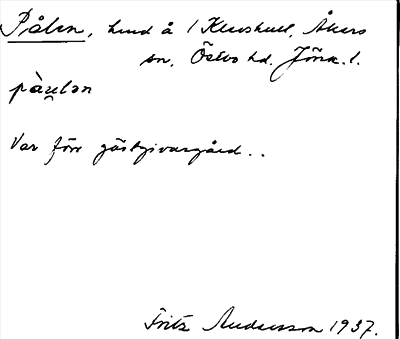 Pålen, hmd å 1 Klevshult, Åkers
sn, Östbo hd. Jönk. l.
pàu̯lən
Var förr gästgivargård..
Fritz Andersson 1937.